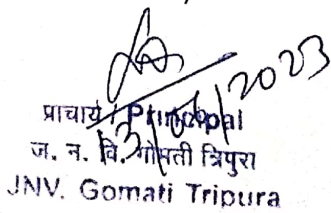 प्राचार्य / Principal
ज. न. वि. गोमती त्रिपुरा
JNV. Gomati Tripura